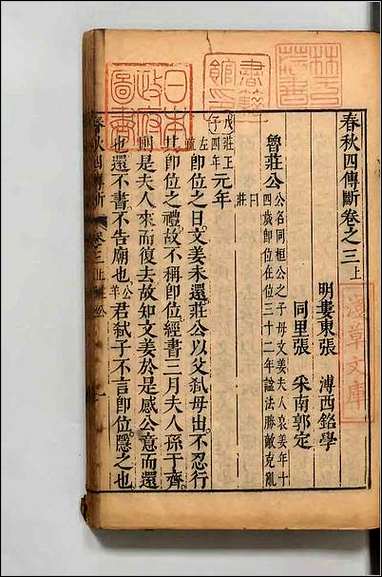 春秋四傳斷卷之三上
明婁東張 溥西銘學
同里張 采南郭定
魯莊公 公名同桓公之子母文姜夫人哀姜年十四歲即位在位三十二年謚法勝敵克亂曰莊
戊子 莊王四年 元年
左 即位之日文姜未還莊公以父弒母出不忍行
其即位之禮故不稱即位經書三月夫人孫于齊
則是夫人來而復去故知文姜於是感公意而還
也還不書不告廟也 公羊 君弒子不言即位隱之也
春秋四傳斷 卷三上 莊公
日本政府圖書
書籍館印
淺草文庫